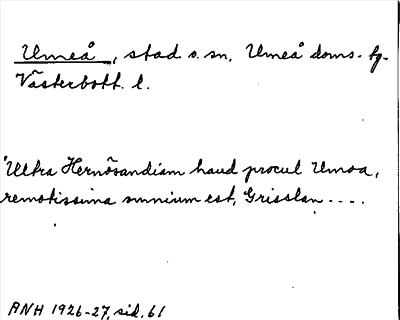 Umeå, stad o. sn, Umeå doms. fg.
Västerbott. l.
"Ultra Hernösandiam haud procul Umoa,
remotissima omnium est, Grisslan ----.
ANH 1926-27, sid. 61